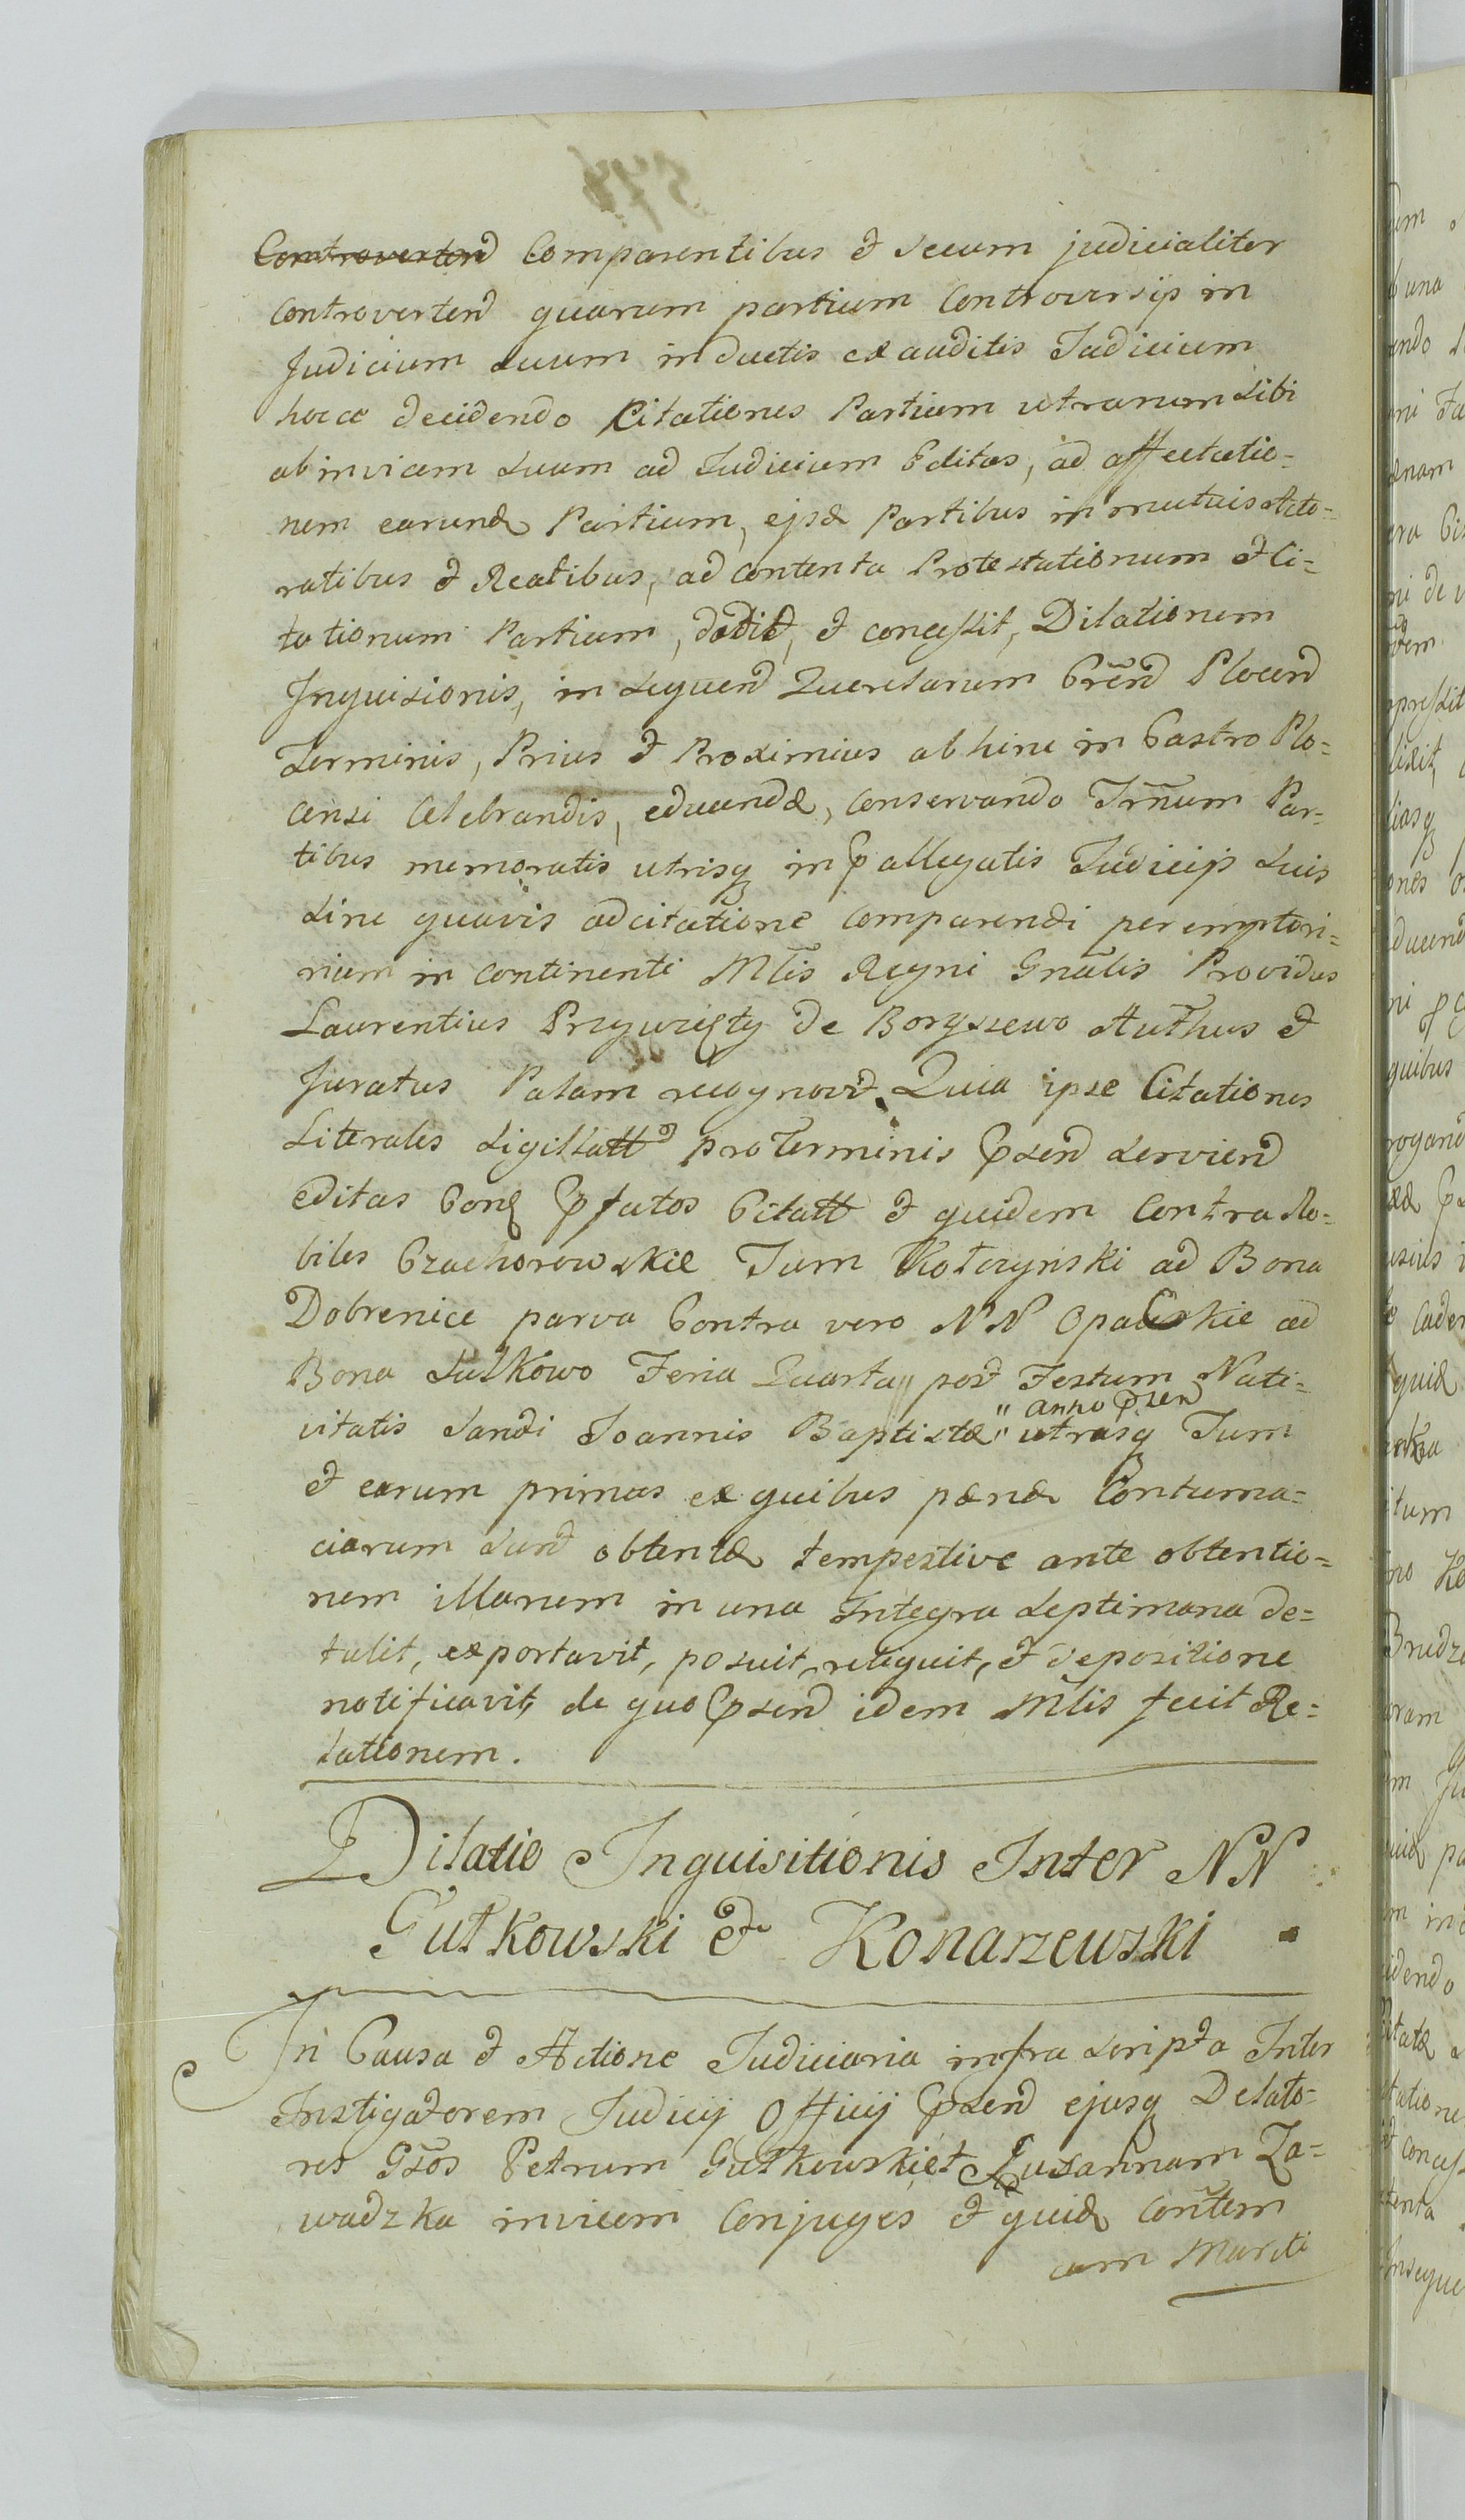 Controvertend Comparentibus et secum judicialiter
controvertend quarum partium Controversijs in
Judicium suum inductis exauditis Judicium
hocce decidendo Citationes Partium utrarum sibi
ab invicem suum ad Judicium Editas, ad affectatio=
nem earundæ Partium, ejsdæ Partibus in mutuis Acto=
ratibus et Reatibus, ad contenta Protestationum et Ci=
tationum Partium, dedit, et concessit, Dilationem
Inquisionis, in sequend Querelarum Grend Plocend
Terminis, Prius et Proximius ab hinc in Castro Plo=
censi Celebrandis, educendæ, conservando Trnum Par=
tibus memoratis utrisq in pallegatis Judicijs suis
sine quavis adcitatione comparendi peremptori=
rium in continenti Mtis Regni Gnalis Providus
Laurentius Przywzięty de Boryszewo Authus et
Juratus Palam recognovit Quia ipse Citationes
Literales sigillatt pro Terminis Psend serviend
editas Conq Pfatos Citatt et quidem Contra No=
biles Czachorowskie Tum Kotczynski ad Bona
Dobrenice parva Contra vero NN Opalskie ad
Bona Sutkowo Feria Quarta post Festum Nati=
vitatis Sancti Joannis Baptistæ " anno Psen " utrasq Tum
et earum primas ex quibus pænæ Contuma=
ciarum sunt obtentæ tempestive ante obtentio=
nem illarum in una Integra septimana de=
tulit, exportavit, posuit, reliquit, et depositione
notificavit, de quo Psend idem Mtis fecit Re=
lationem.
Dilatio Inquisitionis Inter NN
Gutkowski et Konarzewski
In Causa et Actione Judiciaria infra scripta Inter
Instigatorem Judicij Officij Psend ejusq Delato=
res Gsos Petrum Gutkowski et Zusannam Za=
wadzka invicem Conjuges et quidæ Contem
cum Mariti